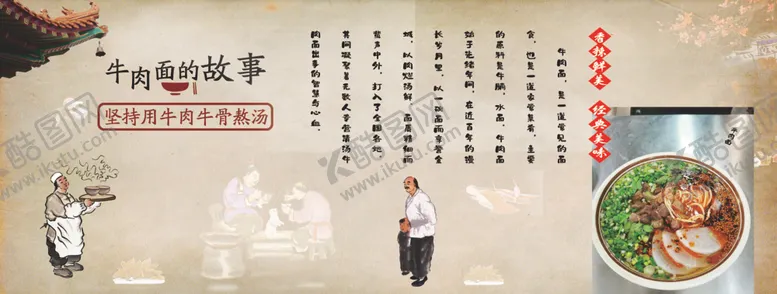 牛肉面的故事
坚持用牛肉牛骨熬汤
香辣鲜美
经典美味
牛肉面，是一道常见的面
食，也是一道家常菜肴，主要
的原料是牛腩，水面，牛肉面
长岁月里，以一碗面而享誉金
城，以肉烂汤鲜，面质精细而
誉声中外，打入了全国各地，
其间凝聚着无数人辛营菜汤牛
肉面出事的智慧与心血。
酷图网
www.ikutu.com